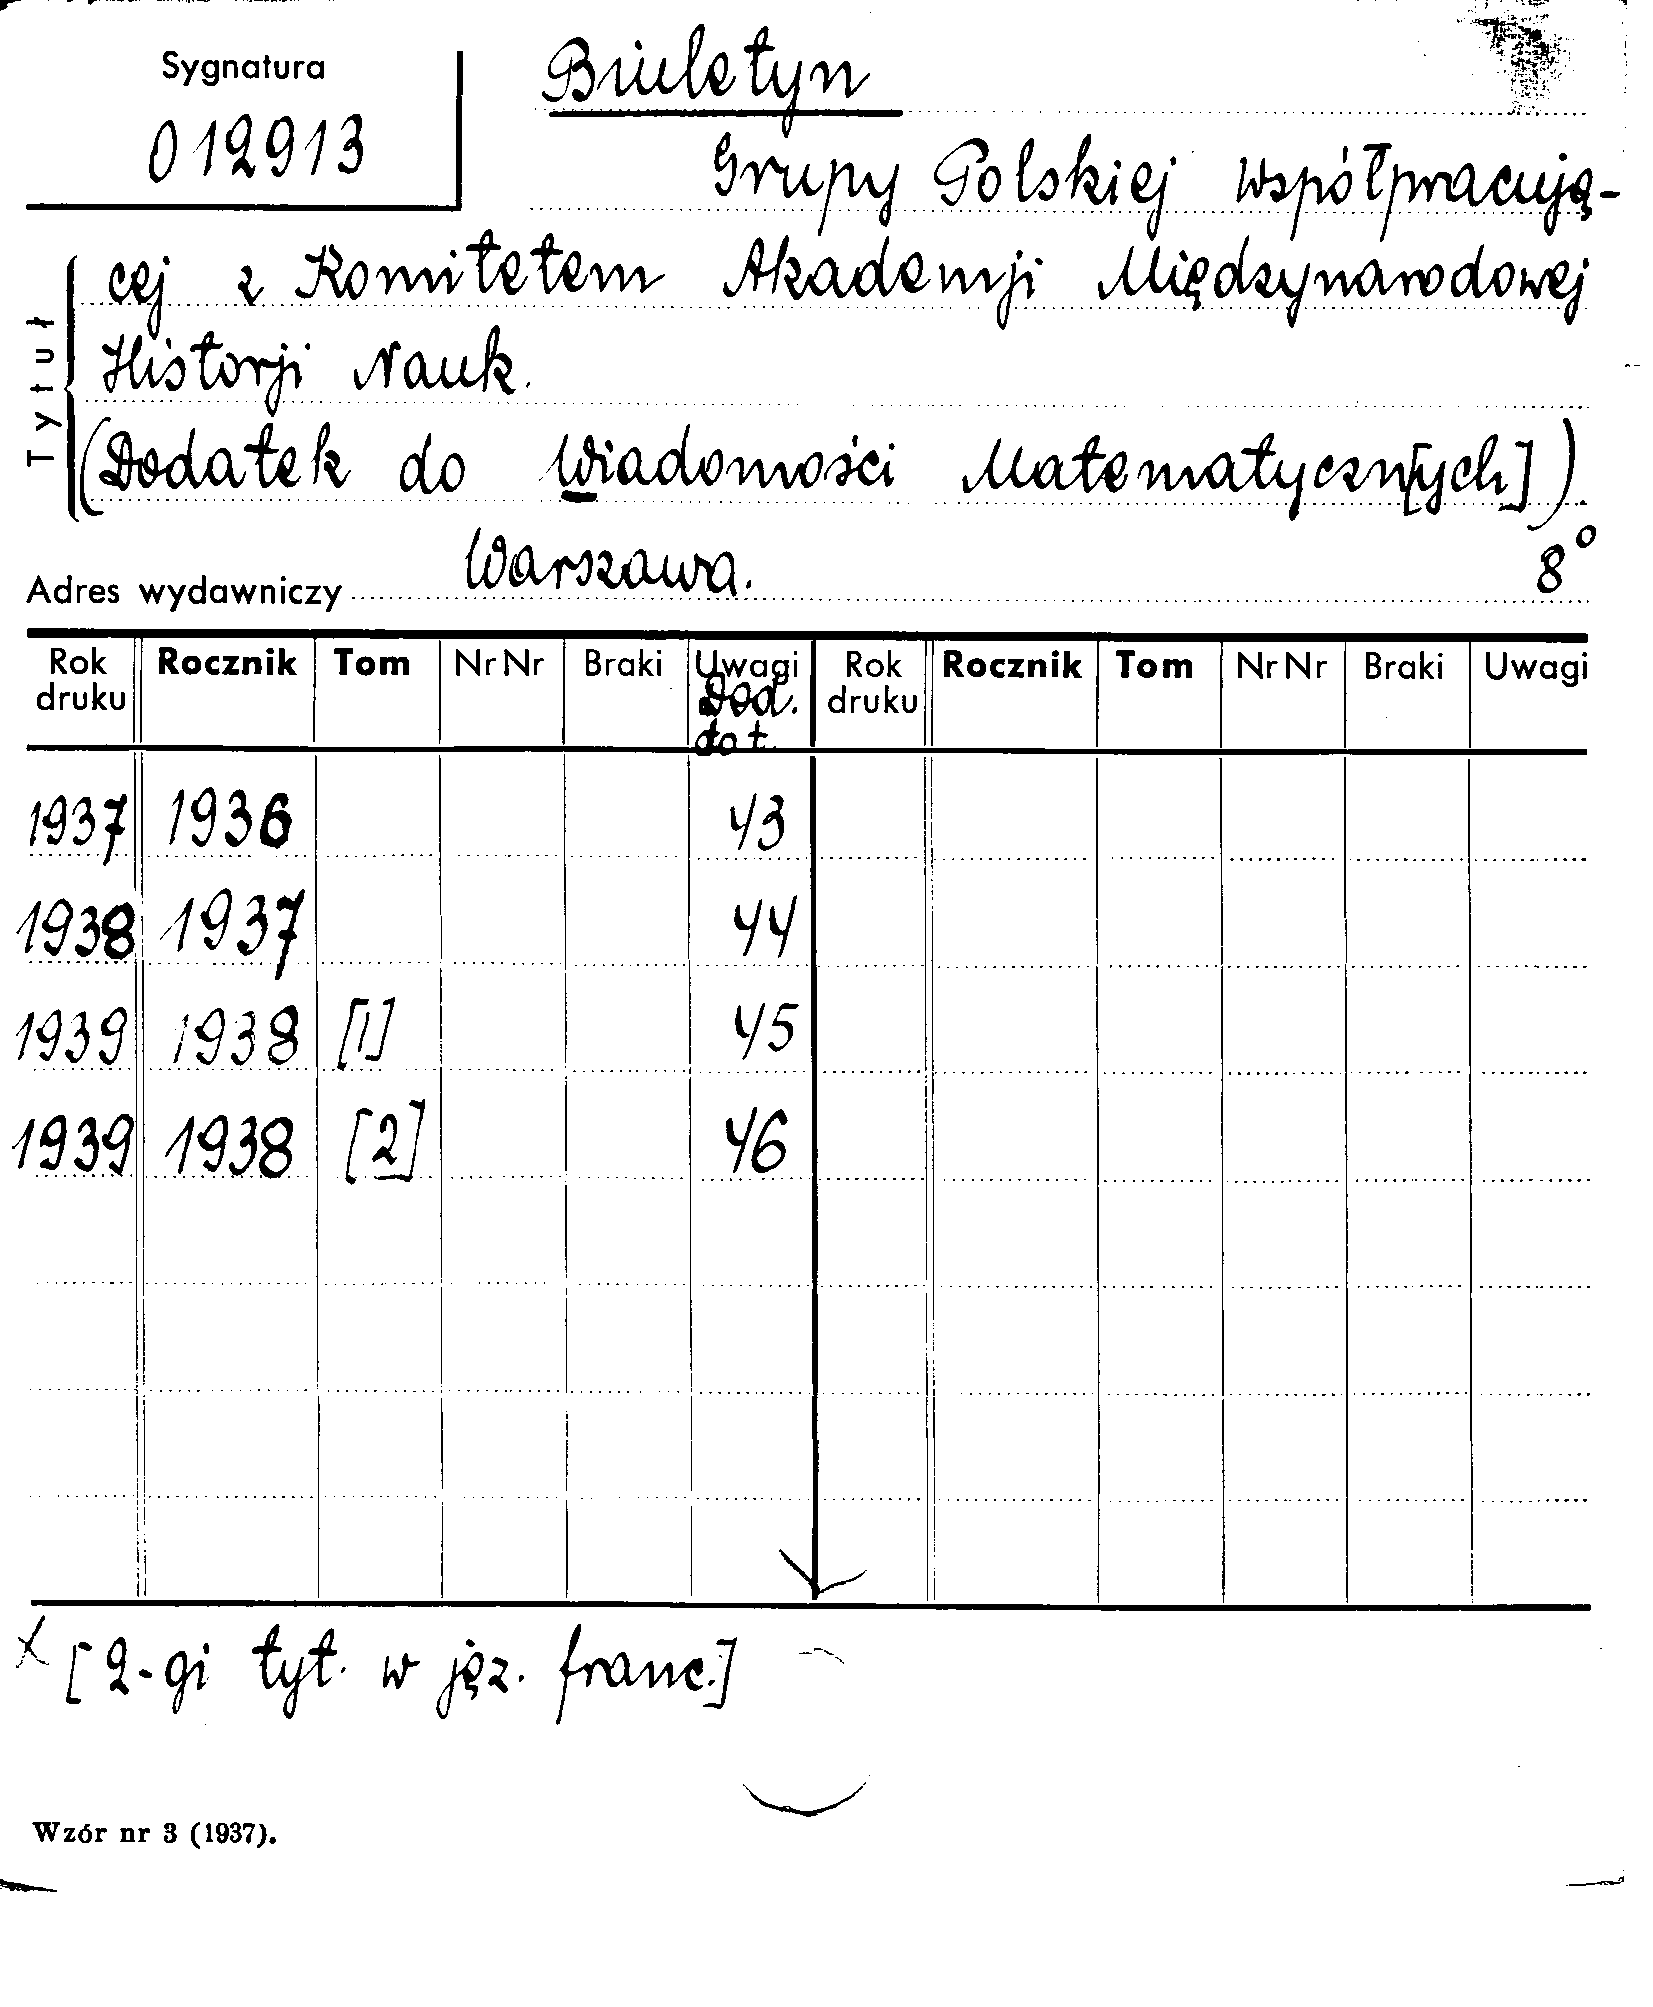 Sygnatura
012913
Biuletyn
Grupy Polskiej współpracują-
cej z Komitetem Akademji Międzynarodowej
Historji Nauk.
(Dodatek do Wiadomości Matematyczn[ych])
Tytuł
Warszawa. 8°
Adres wydawniczy
Rok druku Rocznik Tom Nr Nr Braki Uwagi Rok druku Rocznik Tom Nr Nr Braki Uwagi
Dod.
do t.
1937 1936 43
1938 1937 44
1939 1938 [1] 45
1939 1938 [2] 46
x [2-gi tyt. w jęz. franc.]
Wzór nr 3 (1937).